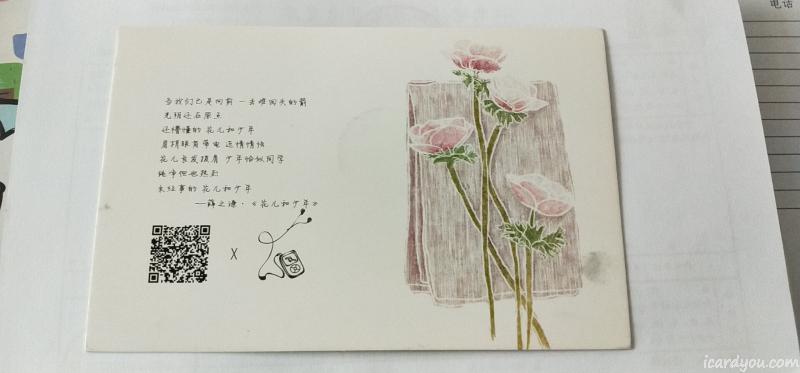 当我们已是向前 一去难回头的箭
光阴还在原点
还懵懂的 花儿和少年
肩膀跟着带电 还情情怯
花儿长发披肩 少年恰似同学
纯净但也热烈
未经事的 花儿和少年
——薛之谦·《花儿和少年》
X
电话
icardyou.com